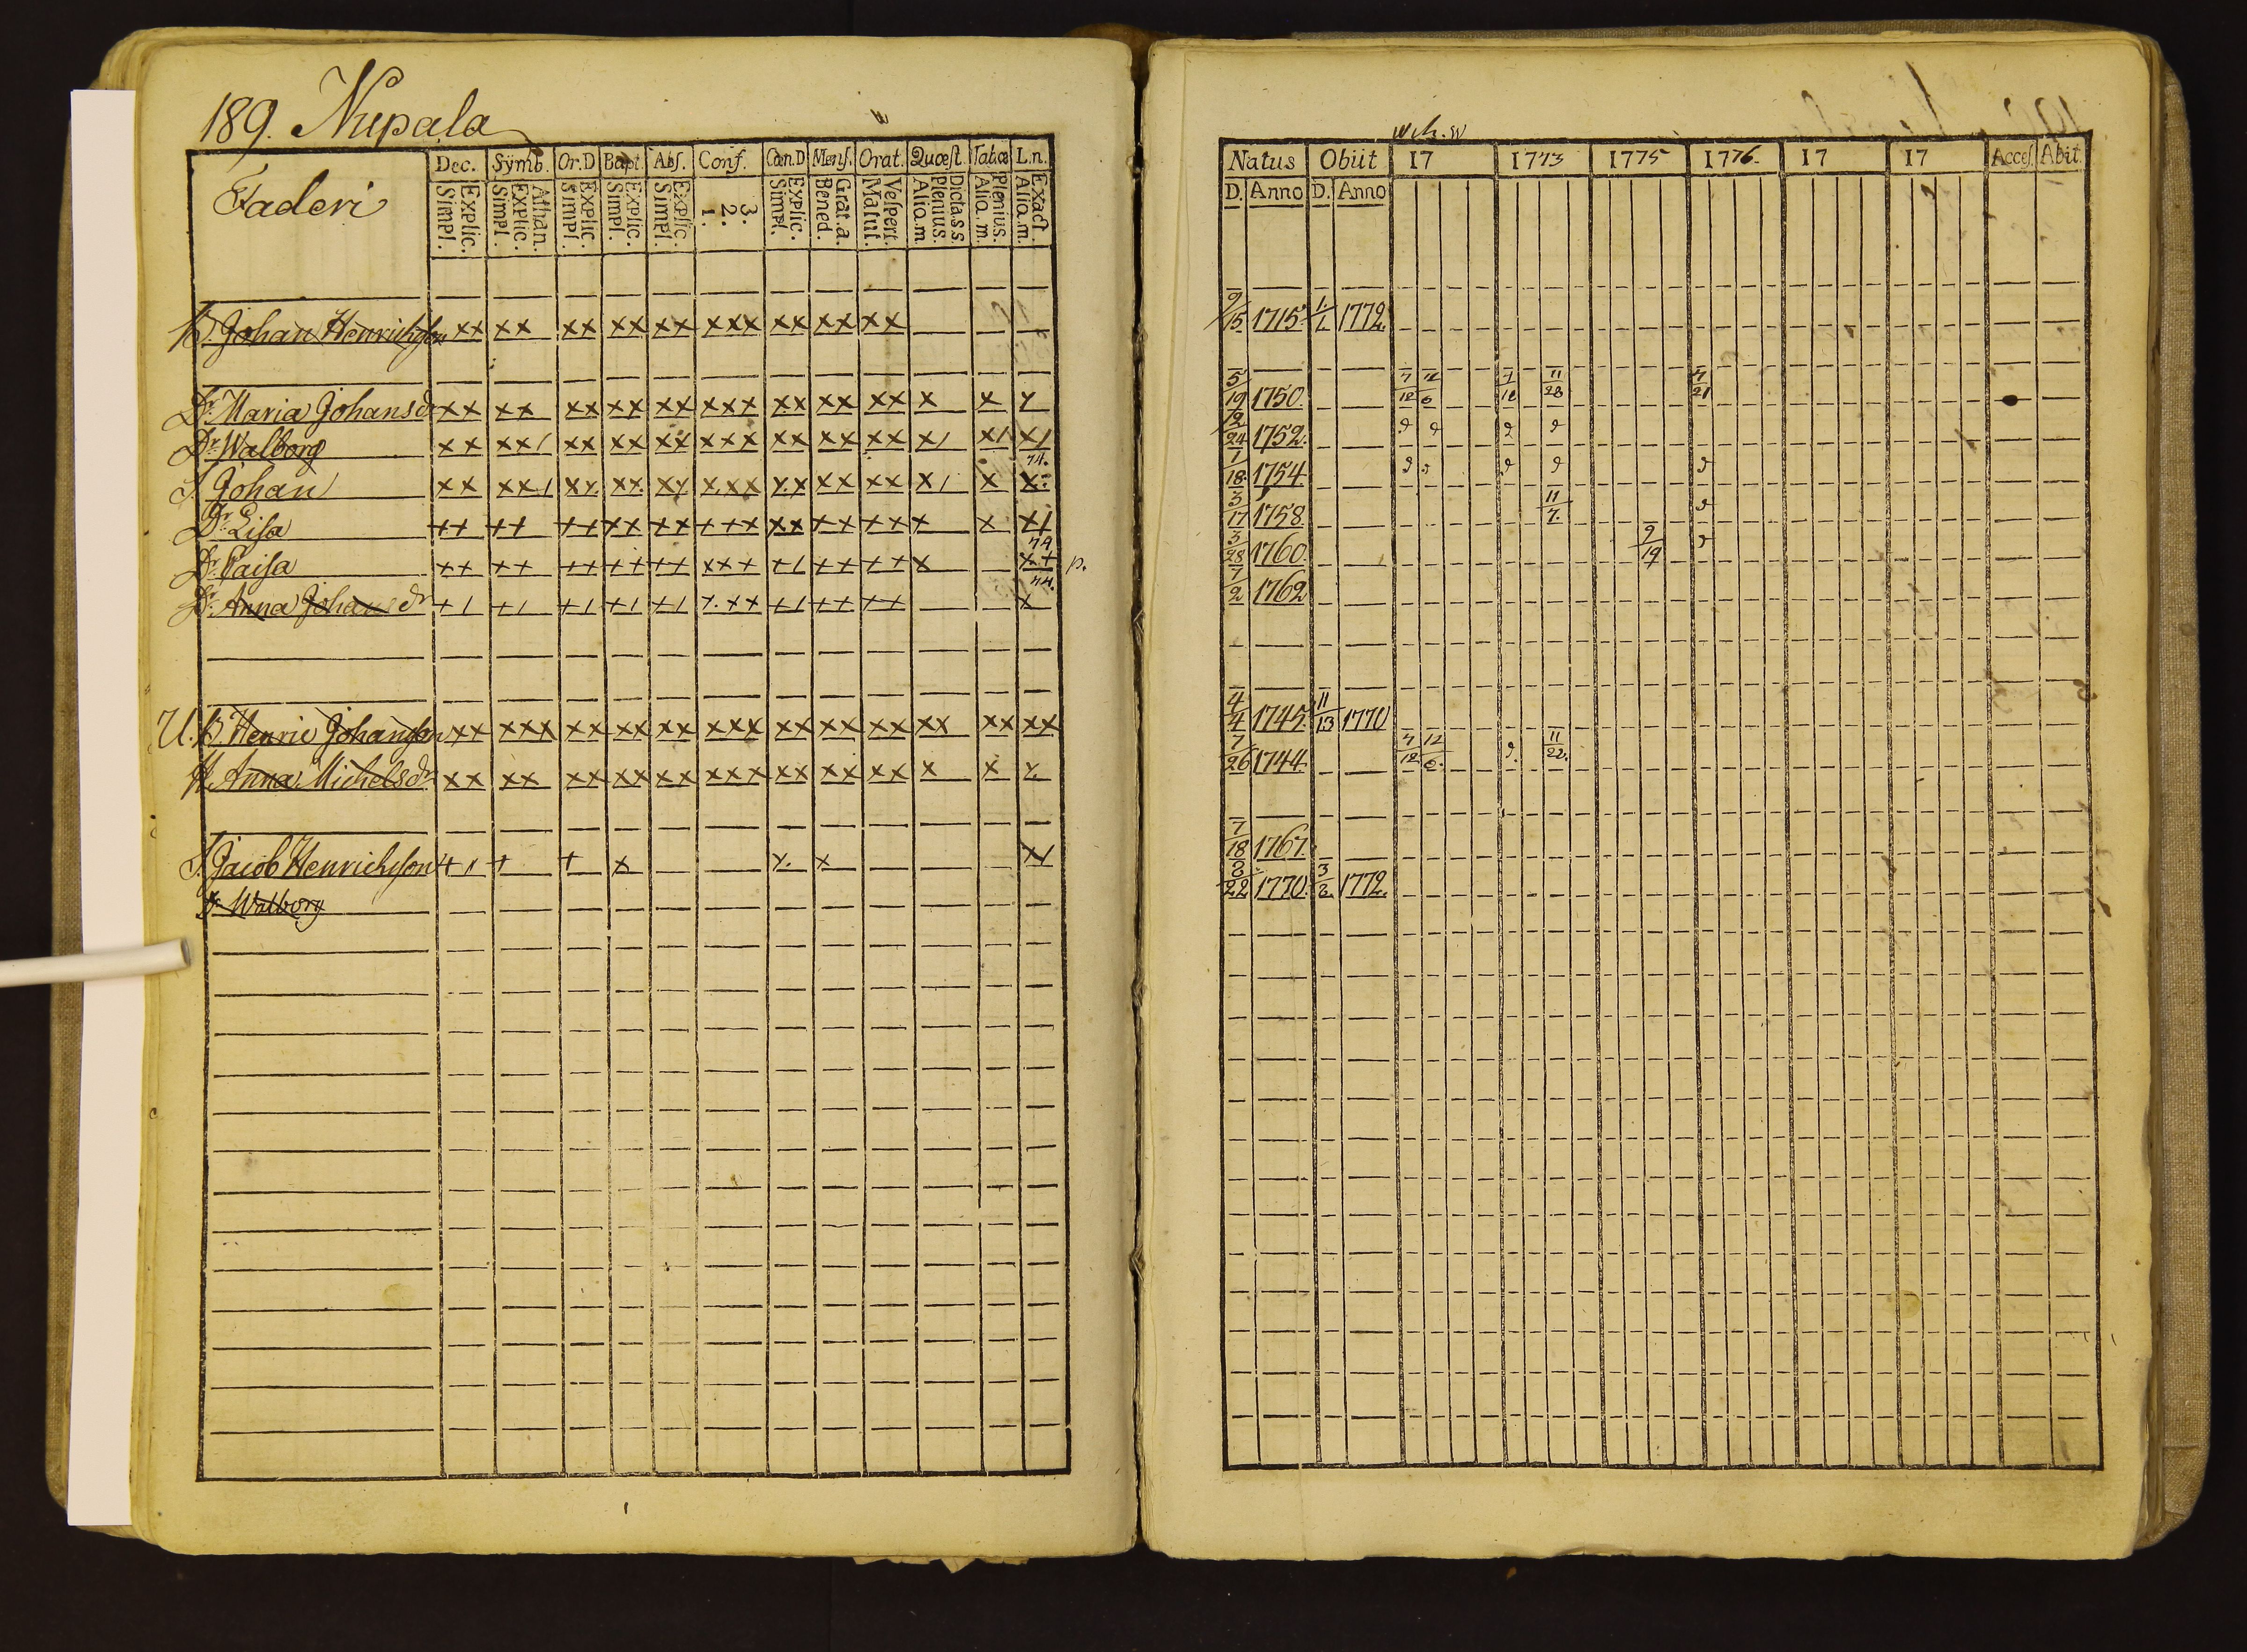 189. Nupala
Faderi
Dec. Symb. Or.D Bapt. Abs. Conf. Cœn.D Mens. Orat. Quæst. Tabœ L.n.
Explic. Simpl. Athan. Explic. Simpl. Explic. Simpl. Explic. Simpl. Explic. Simpl. 3. 2. 1. Explic. Simpl. Grat.a. Bened. Vespert. Matut. Dicta.s.s Plenius. Aliq.m. Plenius. Aliq.m. Exact. Aliq.m.
B. Johan Henrichsson xx xx xx xx xx xxx xx xx xx
Dr. Maria Johansdr xx xx xx xx xx xxx xx xx xx x x x
Dr. Walborg xx xx/ xx xx xx xxx xx xx xx x/ x/ x/
S. Johan xx xx/ xx xx xx xxx xx xx xx x/ x 74. x
Dr. Lisa ++ ++ ++ xx xx +xx xx ++ ++ x x x/
Dr. Caisa ++ ++ ++ ++ ++ xx+ +/ ++ ++ x 74 x+ p.
Dr. Anna Johansdr +/ +/ +/ +/ +/ x.xx +/ ++ ++ 74. x
U. B. Henric Johansson xx xxx xx xx xx xxx xx xx xx xx xx xx
H. Anna Michelsdr xx xx xx xx xx xxx xx xx xx x x x
S. Jacob Henrichsson +/ + + x x. x x/
Dr Walborg
Natus Obiit 17 1773 1775 1776. 17 17 Acces. Abit.
D. Anno D. Anno
9/15 1715 1/1 1772.
5/19 1750. 4/12 12/6 4/18 11/28 4/21
12/24 1752.
1/18 1754.
3/17 1758. 11/7.
3/28 1760. 9/19
7/2 1762
4/4 1745. 11/13 1770
7/26 1744. 4/12 12/6. 11/22.
7/18 1767.
8/22 1770. 3/8. 1772.